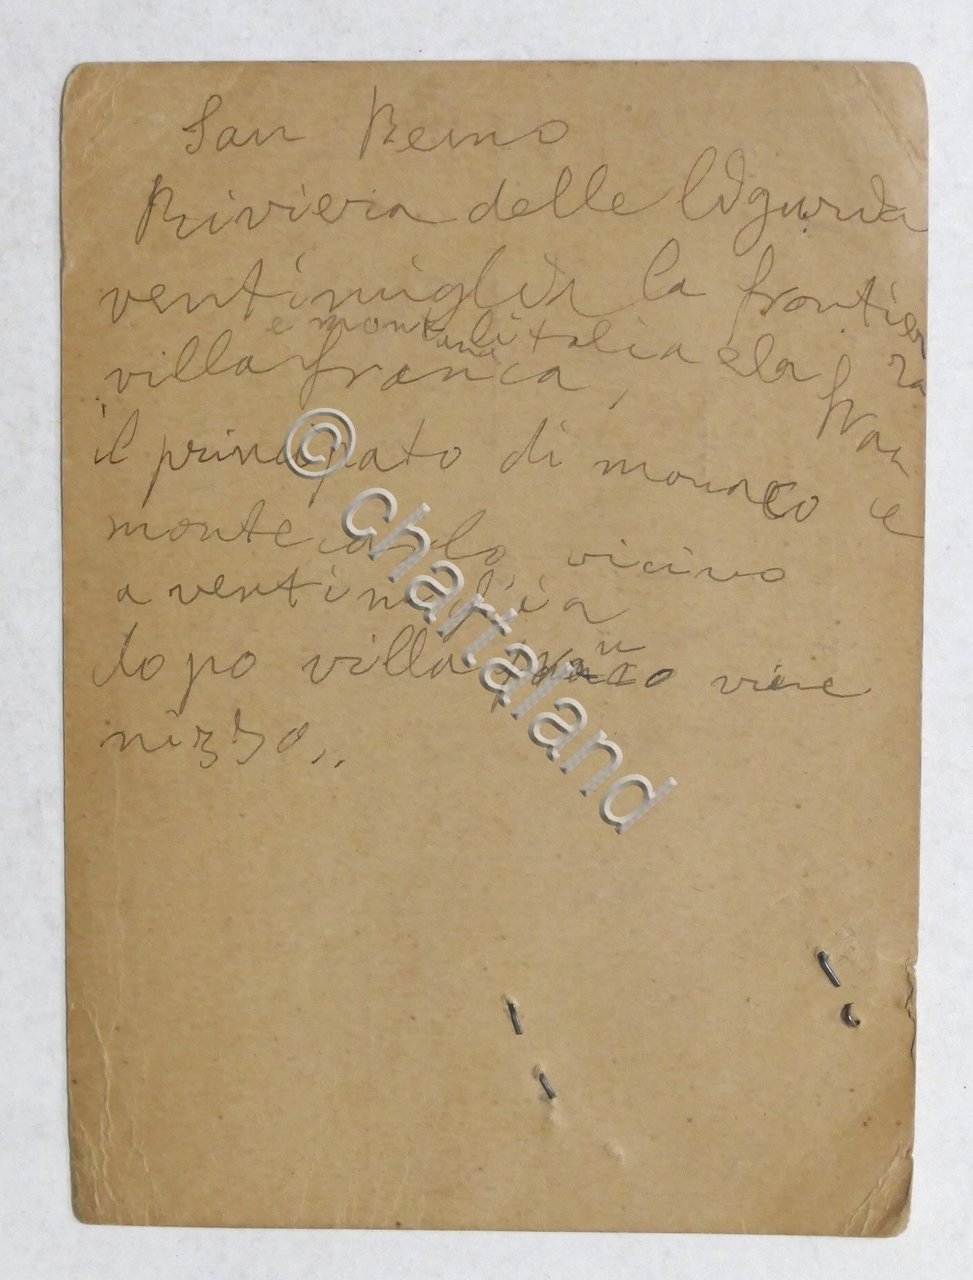 San Remo
Riviera delle liguria
ventimiglia la frontiera
e mentana litalia e la francia
villa franca,
il principato di monaco e
monte carlo vicino
a ventimiglia
dopo villa franco viene
nizza,,
© chartaland